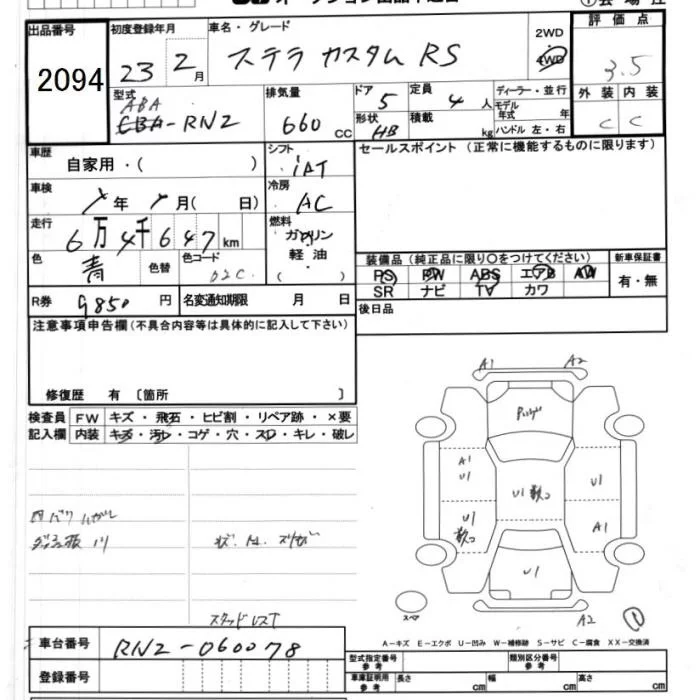 出品番号
2094
初度登録年月
23 2月
車名・グレード
ステラ カスタム RS
2WD
4WD
評価点
3.5
型式
ABA
CBA-RN2
排気量
660 cc
ドア
5
形状
HB
定員
4 人
積載
kg
ディーラー・並行
モデル年式 年
ハンドル 左・右
外装 内装
C C
車歴
自家用・( )
シフト
iAT
セールスポイント(正常に機能するものに限ります)
車検
年 月( 日)
冷房
AC
走行
6万4千647km
燃料
ガソリン
軽油・
( )
色
青
色替
色コード
02C
装備品(純正品に限り○をつけてください)
新車保証書
PS PW ABS エアB AW
有・無
SR ナビ TV カワ
R券 9850 円
名変通知期限 月 日
後日品
注意事項申告欄(不具合内容等は具体的に記入して下さい)
修復歴 有〔箇所 〕
検査員
記入欄
FW キズ・飛石・ヒビ割・リペア跡・×要
内装 キズ・汚レ・コゲ・穴・スレ・キレ・破レ
A1 A2
A1
U1
U1
U1
U1
A1
U1
スペア
A2
①
スタッドレスT
A-キズ E-エクボ U-凹み W-補修跡 S-サビ C-腐食 XX-交換済
車台番号
RN2-060078
登録番号
型式指定番号
参考
類別区分番号
参考
車庫証明用
参考
長さ cm 幅 cm 高さ cm